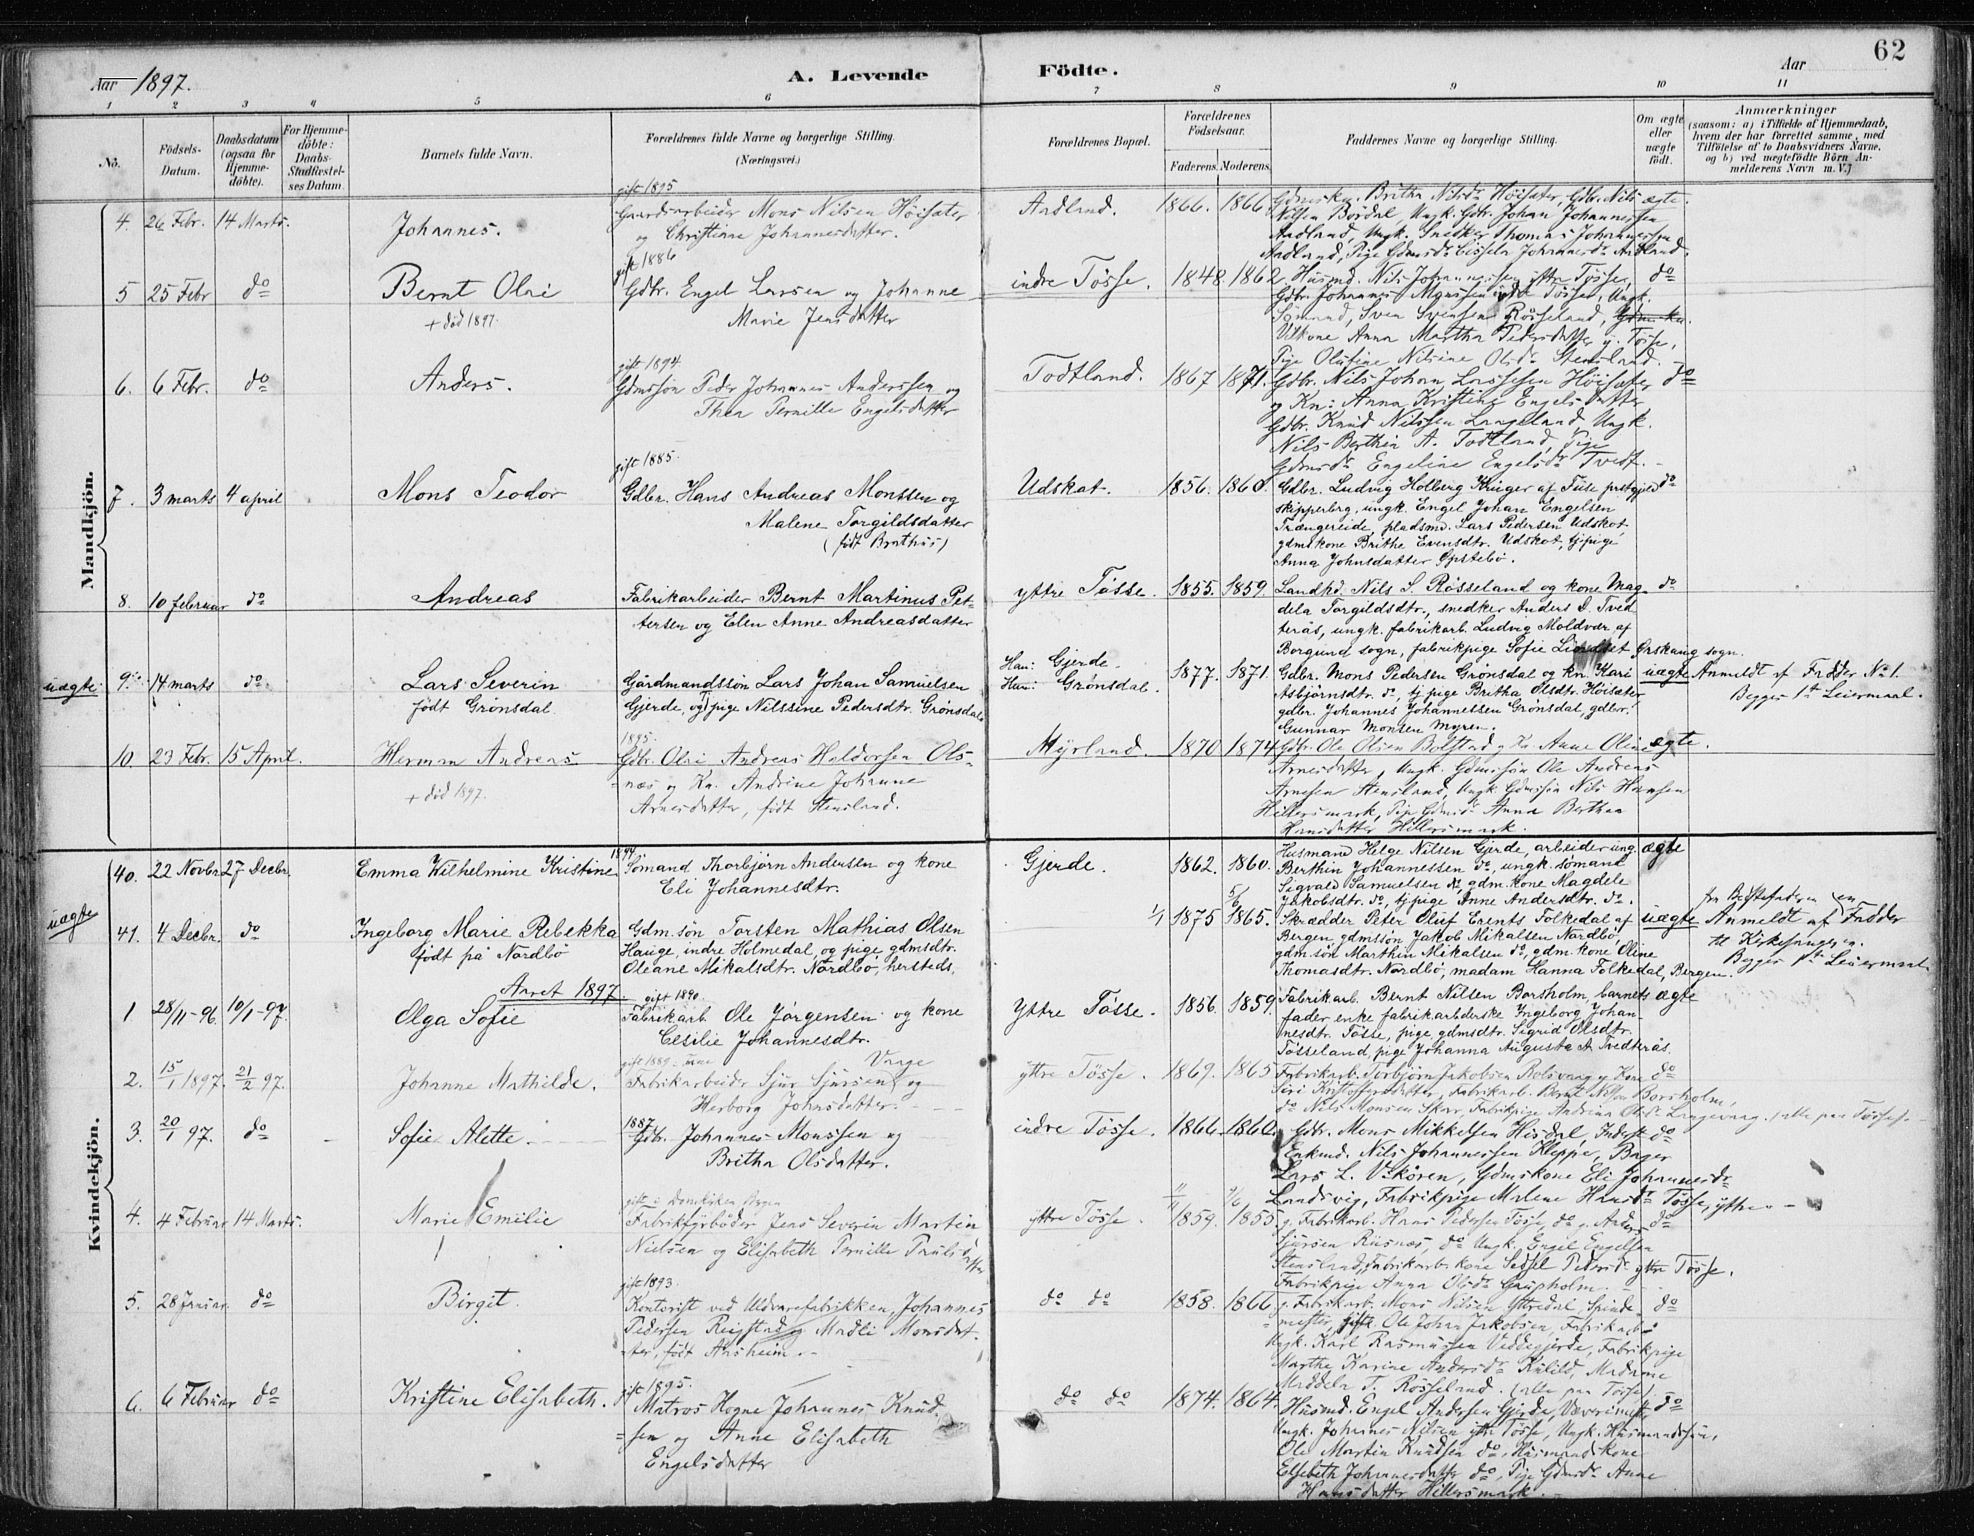 62
Aar 1897.
A. Levende Födte.
Aar
1 2 3 4 5 6 7 8 9 10 11
No.
Födsels-Datum.
Daabsdatum (ogsaa for Hjemmedöbte).
For Hjemmedöbte: Daabs-Stadfæstelses Datum.
Barnets fulde Navn.
Forældrenes fulde Navne og borgerlige Stilling.
(Næringsvei.)
Forældrenes Bopæl.
Forældrenes Födselsaar.
Faderens. Moderens.
Faddernes Navne og borgerlige Stilling.
Om ægte eller uægte födt.
Anmærkninger
(saasom: a) i Tilfælde af Hjemmedaab,
hvem der har forrettet samme, med
Tilföielse af to Daabsvidners Navne.
og b) ved uægtefödte Börn Anmelderens Navn m. V.)
Mandkjön.
4. 26 Febr. 14 Marts. Johannes.
gift 1895
Gaardsarbeider Mons Nilsen Höisæter
og Christiane Johannesdatter.
Aadland. 1866. 1866
Gdmsku. Britha Nilsdr Höisæter, Gdbr. Nils ægte.
Nilsen Bördal, Ungk. Gdbr. Johan Johannessen
Aadland, Ungk. Snedker Thomas Johannessen
Aadland, Pige Gdmsdr Johannesdr Aadland.
5 25 Febr do Bernt Olai
+ död 1897.
gift 1886
Gdbr. Engel Larsen og Johanne
Marie Jensdatter
indre Tösse. 1848. 1862.
Husmd. Nils Johannessen ytre Tösse, do
Gdbr. Johannes Monssen indre Tösse, Ungk.
Sömand, Sven Svensen Rösseland,
Utkone Anna Martha Pedersdatter y. Tösse,
Pige Olufine Nilsine Olsdr Stensland.
6. 6 Febr. do Anders.
gift 1894.
Gdmssön Peder Johannes Anderssen og
Thea Pernille Engelsdatter
Todtland. 1867 1871.
Gdbr. Nils Johan Lassesen Höisæter do
og Kn: Anna Kristine Engelsdatter
Gdbr. Knud Nilssen Langeland, Ungk.
Nils Berthin A. Todtland, Pige
Gdmsdr Engeline Engelsdr Tvedt.
7. 3 marts 4 april Mons Teodor
gift 1885.
Gdbr. Hans Andreas Monssen og
Malene Torgildsdatter
(födt Brathus)
Udskot. 1856. 1860.
Gdbr. Ludvig Holberg Krüger af Fuse prstgjeld do
skipperbrg, ungk. Engel Johan Engelsen
Trængereide, pladsmd. Lars Pedersen Udskot
gdmskone Brithe Evensdtr. Udskot, tj.pige
Anna Johnsdatter Opstebö.
8. 10 februar do Andreas
Fabrikarbeider Bernt Martinus Pettersen
og Elen Anne Andreasdatter
yttre Tösse. 1855. 1859.
Landhd. Nils S. Rösseland og kone Mag- do
dela Torgildsdtr., snedker Anders D. Tved
terås, ungk. fabrikarb. Ludvig Moldvær af
Borgund sogn, fabrikpige Sofie Lindset Ørskaug sogn.
uægte 9. 14 marts do Lars Severin
födt Grönsdal.
Gårdmandssön Lars Johan Samuelsen
Gjerde, og tj.pige Nilssine Pedersdtr. Grönsdal
Han: Gjerde.
Hun: Grönsdal.
1877. 1871.
Gdbr. Mons Pedersen Grönsdal og kn. Kari uægte
Asbjörnsdtr. do, tj.pige Britha Olsdtr. Höisæter
gdbr. Johannes Johannessen Grönsdal, gdbr.
Gunnar Monsen Myren.
Anmeldt af Fadder No 1.
Begges 1st Leiermaal.
10. 23 Febr. 15 April. Herman Andreas
+ död 1897.
1895.
Gdbr. Olai Andreas Haldorsen Ols-
næs og Kn. Andrine Johanne
Arnesdatter, födt Stensland.
Myrland. 1870. 1874
Gdbr. Ole Olsen Bolstad og Kn. Anne Oline ægte.
Arnesdatter, Ungk. Gdmssön Ole Andreas
Arnesen Stensland, Ungk Gdmssön Nils Hansen
Hillersmark, Pige Gdmsdr Anna Berthea
Hansdatter Hillersmark.
Kvindekjön.
40. 22 Novbr. 27 Decbr. Emma Wilhelmine Kristine
1894
Sömand Thorbjörn Andersen og kone
Eli Johannesdtr.
Gjerde. 1862. 1860.
Husmand Helge Nilsen Gjerde, arbeider ung. ægte
Berthin Johannessen do, ungk. sömand
Sigvald Samuelsen do, gdm.kone Magdele
Jakobsdtr. do, tj.pige Anne Andersdtr. do.
uægte 41. 4 Decbr. do Ingeborg Marie Rebekka
födt på Nordbö
Gdm.sön Torsten Mathias Olsen
Hauge, indre Holmedal, og pige, gdmsdtr.
Oleane Mikalsdtr. Nordbö, hersteds,
1/1 1875 5/6 1865.
Skrædder Peter Oluf Erents Folkedal af uægte
Bergen, gdmssön Jakob Mikalsen Nordbö,
gdm.sön Marthin Mikalsen do, gdm.kone Oline
Thomasdtr. Nordbö, madam Hanna Folkedal, Bergen.
Anmeldt af Fadder
til Kirkesangeren.
Begges 1st Leiermaal
Aaret 1897.
1 28/11-96. 10/1-97. Olga Sofie
gift 1890.
Fabrikarb. Ole Jörgensen og kone
Cesilie Johannesdtr.
Yttre Tösse. 1856. 1859.
Fabrikarb. Bernt Nilsen Borsholm, barnets ægte
fader enke fabrikarbderske Ingeborg Johan-
nesdtr. Tösse, pige, gdmsdtr. Sigrid Olsdtr.
Tösseland, pige Johanna Augusta A. Tvedterås.
2. 15/1 1897. 21/2 97. Johanne Mathilde.
gift 1889.
Fabrikarbeider Sjur Sjursen Vaage og
Herborg Johnsdatter.
yttre Tösse. 1869. 1865
Fabrikarb. Torbjörn Jakobsen Rolsvaag og Kone do
Siri Kristoffersdatter, Fabrikarb. Bernt Nilsen Borsholm,
do Nils Monsen Skar, Fabrikpige Andrina Olsdr Langevaag. (alle paa Tösse).
3. 20/1 97. do Sofie Alette.
1887
Gdbr. Johannes Monssen og
Britha Olsdatter.
indre Tösse. 1866. 1860.
Gdbr. Mons Mikkelsen Hisdal, Inderst do
Enkemd. Nils Johannessen Kleppe, Bager
Lars L. Vikören, Gdmskone Eli Johannesdr
Landsvig, Fabrikpige Malene Hansdr Tösse, ytre
4. 4 Februar 14 Marts. Marie Emilie
gift i Domkirken Bergen
Fabrikfyrböder Jens Severin Martin
Nielsen og Elisabeth Pernille Paulsdatter
yttre Tösse. 1859. 1855
g. Fabrikarb. Hans Pedersen Tösse, do g. Anders do
Sjursen Risnæs, do Ungk. Engel Engelsen
Stensland, Fabrikarb. kone Sedsel Pedersdr yttre Tösse.
Fabrikpige Anna Olsdr Gaupholm.
5. 28 Januar do Birgit.
gift 1893.
Kontorist ved Uldvarefabrikken, Johannes
Pedersen Reigstad og Madli Monsdat-
ter, födt Aasheim.
do do 1858. 1866
g. Fabrikarb. Mons Nilsen Yttredal, Spinde- do
mester, gift Ole Johan Jakobsen, Fabrikarb.
Ungk. Karl Rasmussen Viddegjerde, Fabrikpige
Marthe Karine Andersdr Kulild, Madame
Maddela T. Rösseland. (alle paa Tösse).
6. 6 Februar do Kristine Elisabeth.
gift 1895.
Matros Hogne Johannes Knud-
sen og Anne Elisabeth
Engelsdatter
do do 1874. 1864.
Husmd. Engel Andersen Gjerde, Vævermester do
Ungk. Johannes Nilsen ytre Tösse, Ungk. Husmandssön,
Ole Martin Knudsen do, Husmandskone
Elsebeth Johannesdatter do, Pige Gdmsdr Anne
Hansdatter Hillersmark.